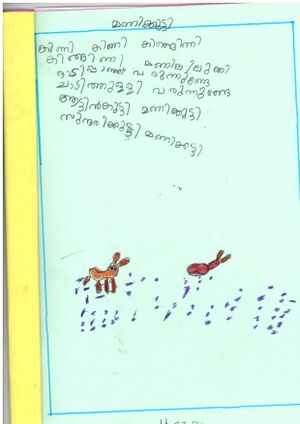 മണിക്കുട്ടി
കിണി കിണി കിങ്ങിണി
കിങ്ങിണി മണികിലുക്കി
ഓടിപ്പാഞ്ഞ് വരുന്നുണ്ടേ
ചാടിത്തുള്ളി വരുന്നുണ്ടേ
ആട്ടിൻകുട്ടി മണിക്കുട്ടി
സുന്ദരിക്കുട്ടി മണിക്കുട്ടി